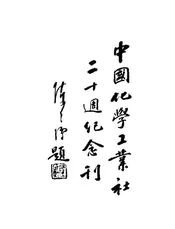 中國化學工業社
二十週紀念刊
題